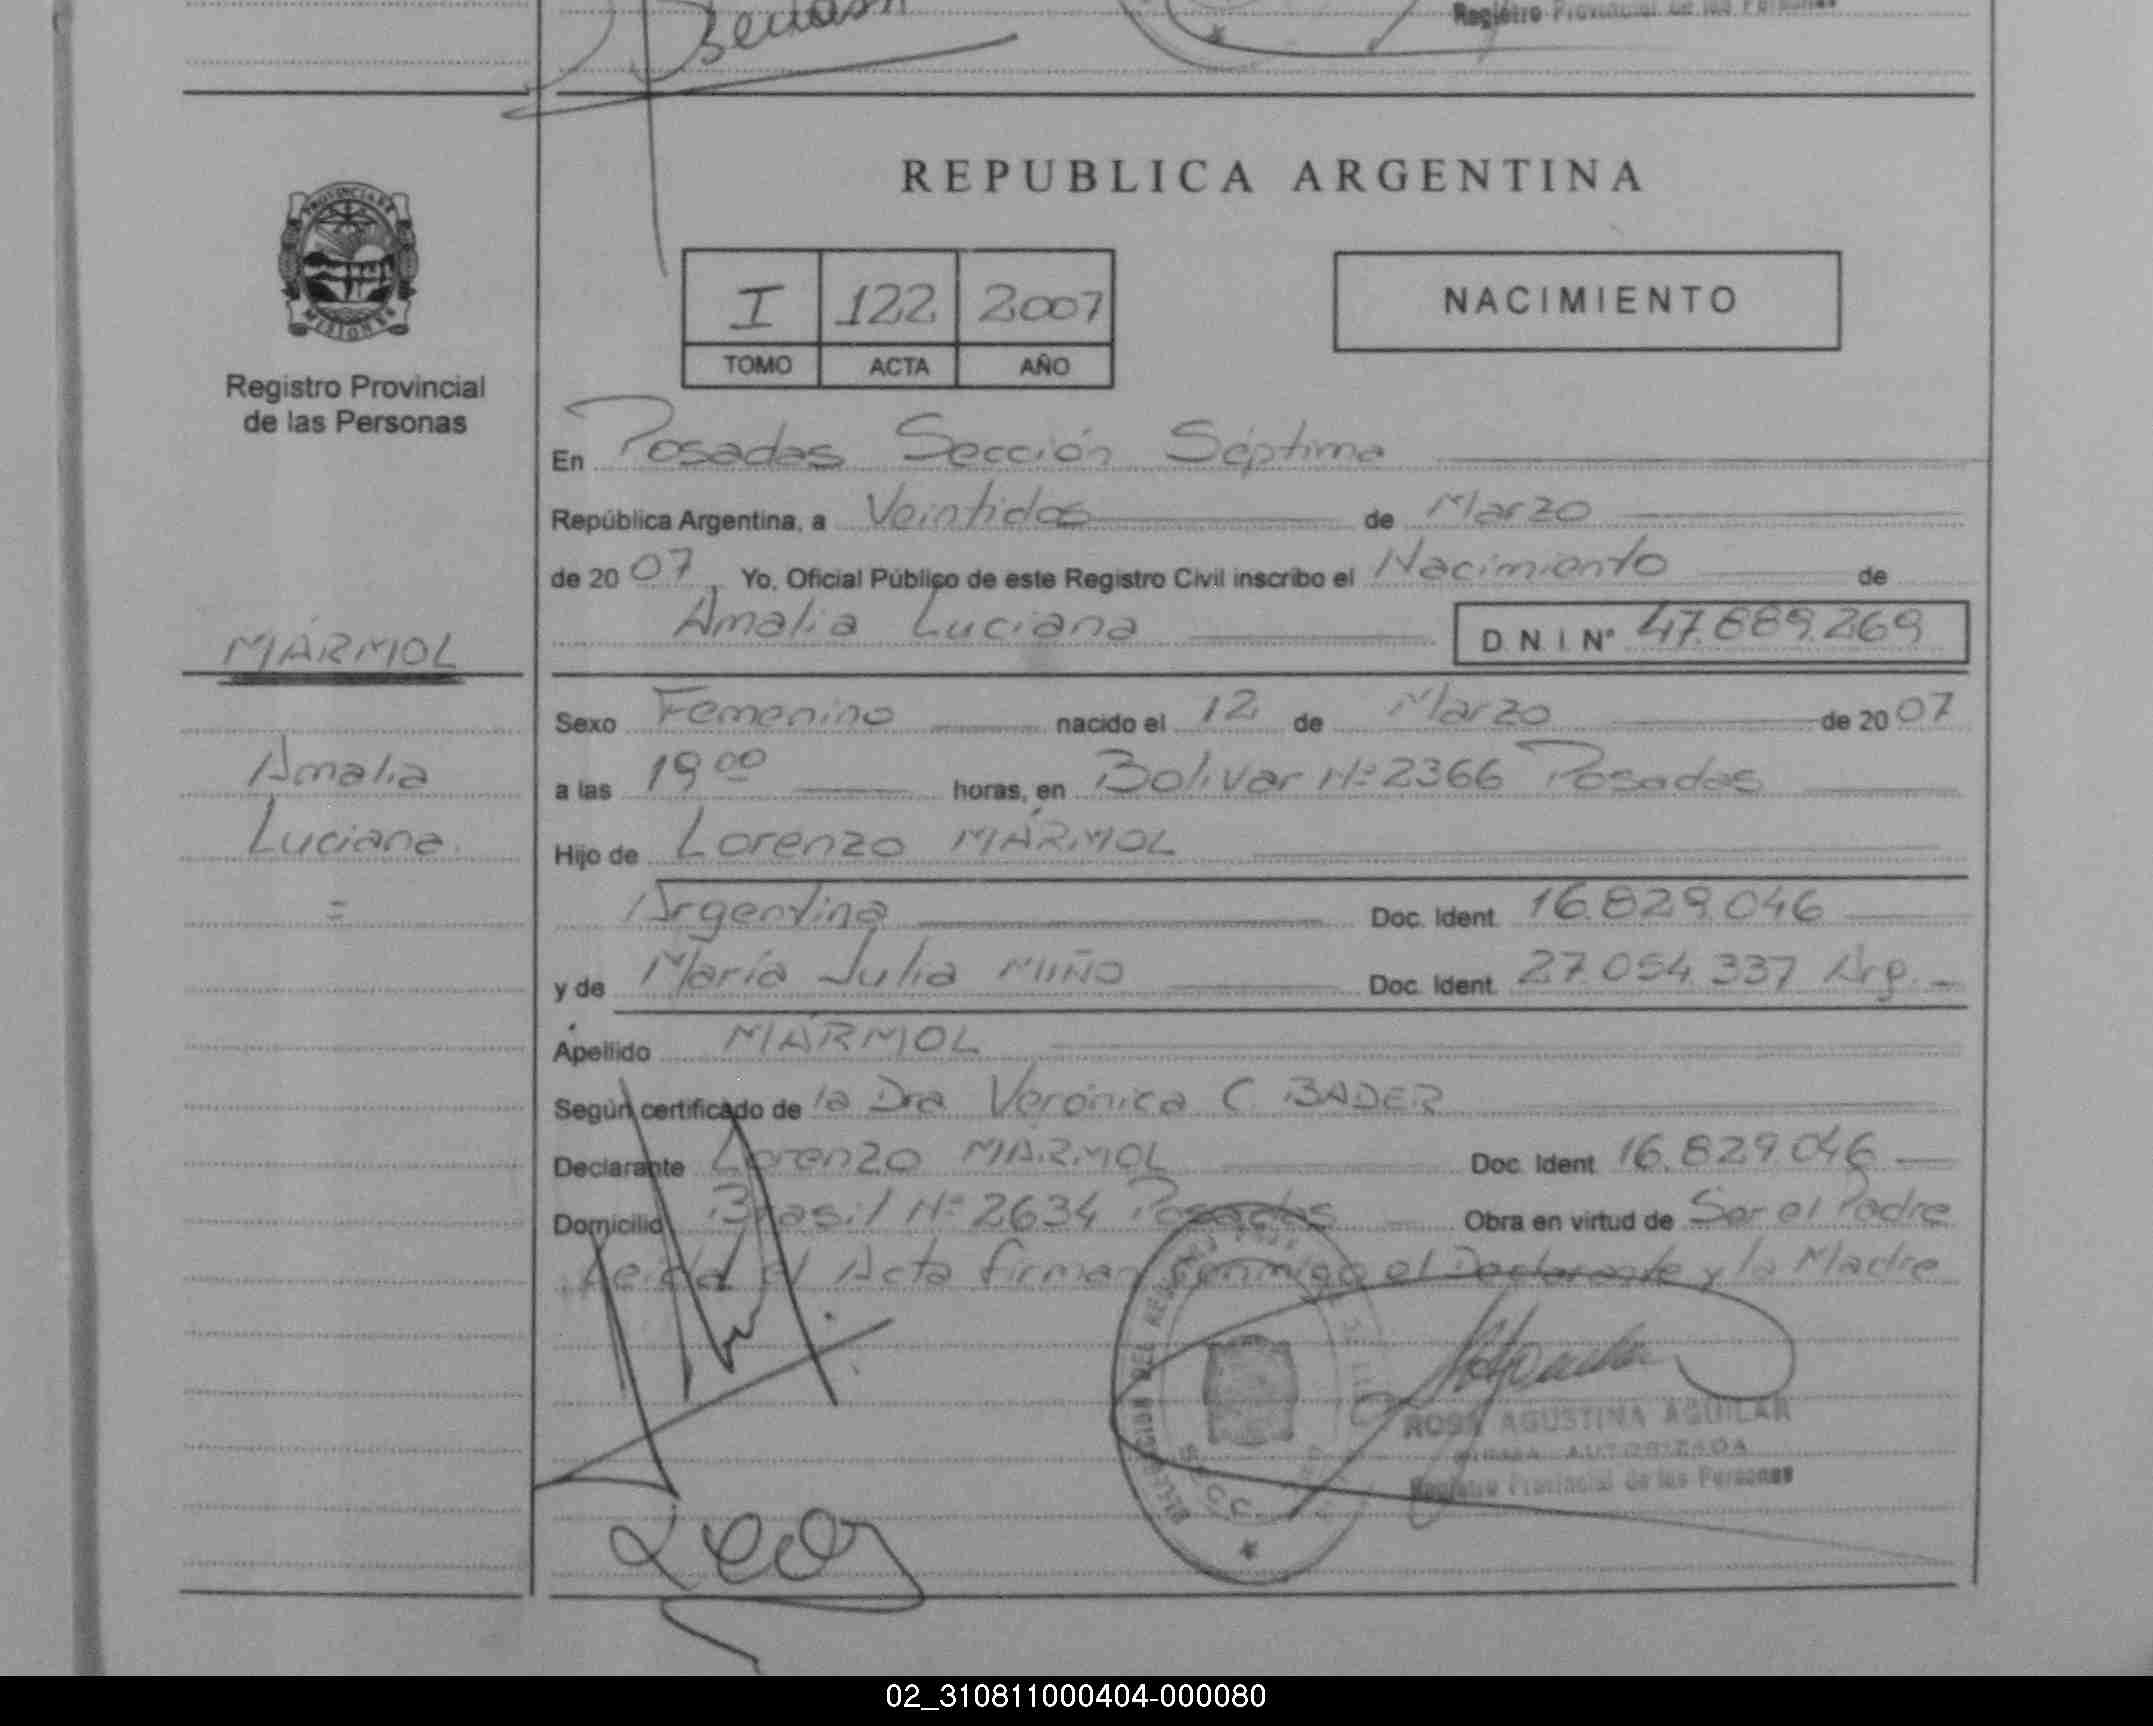 Registro Provincial de las Personas
PROVINCIA DE
MISIONES
Registro Provincial
de las Personas
MÁRMOL
Amalia
Luciana
=
REPUBLICA ARGENTINA
I 122 2007
TOMO ACTA AÑO
NACIMIENTO
En Posadas Sección Séptima
República Argentina, a Veintidos de Marzo
de 2007, Yo, Oficial Público de este Registro Civil inscribo el Nacimiento de
Amalia Luciana D.N.I. N° 47.889.269
Sexo Femenino nacido el 12 de Marzo de 2007
a las 19 00 horas, en Bolivar N° 2366 Posadas
Hijo de Lorenzo MÁRMOL
Argentina Doc. Ident. 16.829.046
y de María Julia MIÑO Doc. Ident. 27.054.337 Arg.
Apellido MÁRMOL
Según certificado de la Dra Verónica C BADER
Declarante Lorenzo MARMOL Doc. Ident. 16.829.046
Domicilio Brasil N° 2634 Posadas Obra en virtud de Ser el Padre
Leida el Acta firman conmigo el Declarante y la Madre
ROSA AGUSTINA AGUILAR
FIRMA AUTORIZADA
Registro Provincial de las Personas
02_310811000404-000080